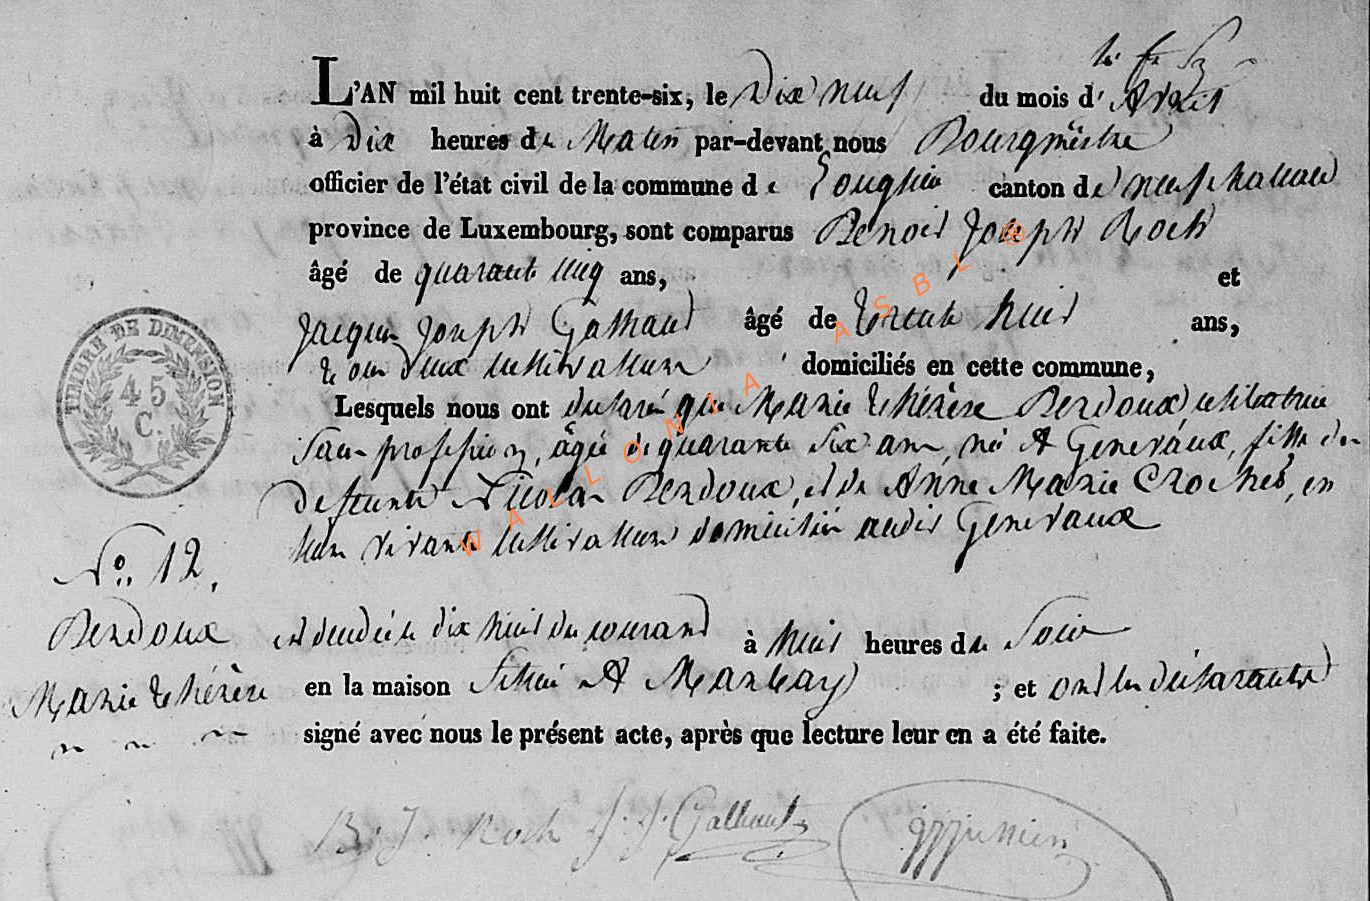 L'AN mil huit cent trente-six, le Dix neuf du mois d' Avril
à Dix heures du Matin par-devant nous Bourgmestre
officier de l'état civil de la commune de Louglier canton de neufchateau
province de Luxembourg, sont comparus Benoit Joseph Roch
âgé de quarante cinq ans, et
Jacques Joseph Galhaut âgé de Trente huit ans,
tous deux cultivateurs domiciliés en cette commune,
Lesquels nous ont declaré que Marie Thérèse Perdoux celibataire
sans profession, âgée de quarante six ans, né A Generaux, fille de
defunts Nicolas Perdoux, et de Anne Marie Crochet, en
leur vivant cultivateurs domiciliés audit Generaux
TIMBRE DE DIMENSION
45
C.
No. 12.
Perdoux
Marie thérèse
est decedée le dix huit du courant à huit heures du Soir
en la maison située A Manbay ; et ont les déclarants
signé avec nous le présent acte, après que lecture leur en a été faite.
B. J. Roch J. J. Galhaut
WALLONIA ASBL @